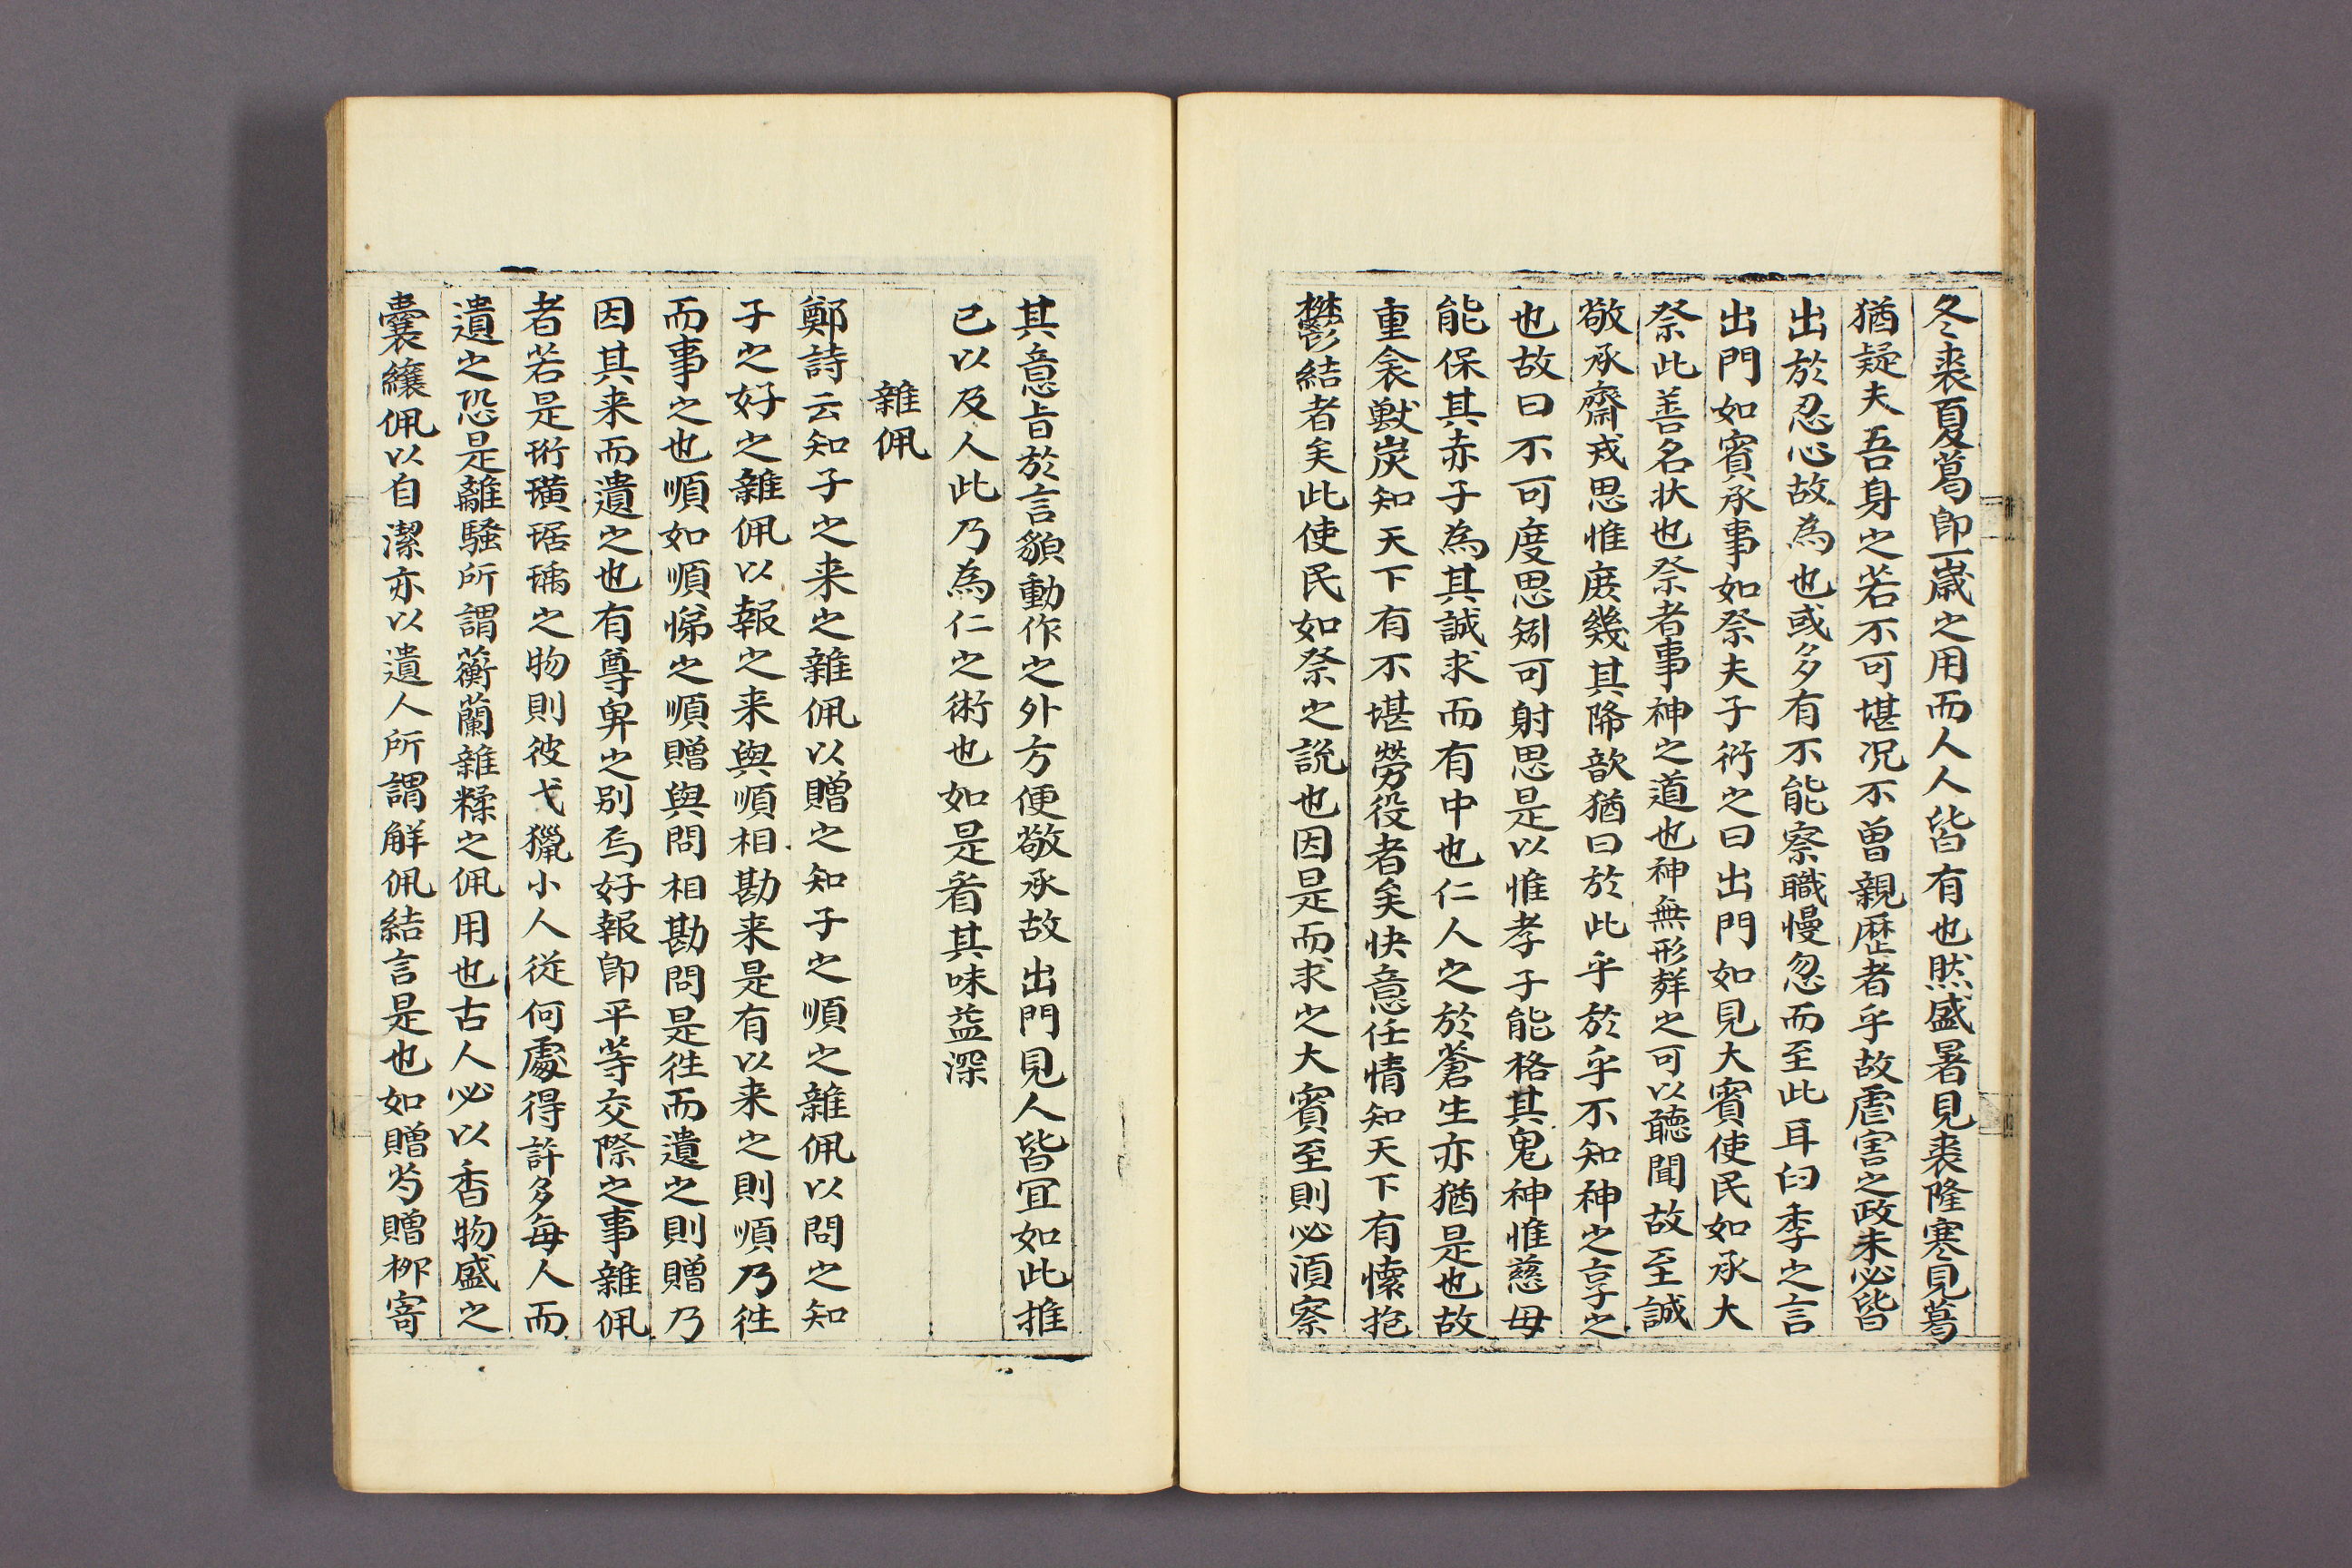 冬裘夏葛卽一歲之用而人人皆有也然盛暑見裘隆寒見葛
猶疑夫吾身之若不可堪况不曾親歷者乎故虐害之政未必皆
出於忍心故爲也或多有不能察職慢忽而至此耳臼季之言
出門如賓承事如祭夫子衍之曰出門如見大賓使民如承大
祭此善名狀也祭者事神之道也神無形聲之可以聽聞故至誠
敬承齋戒思惟庶幾其降歆猶曰於此乎於乎不知神之享之
也故曰不可度思矧可射思是以惟孝子能格其鬼神惟慈母
能保其赤子為其誠求而有中也仁人之於蒼生亦猶是也故
重衾獸炭知天下有不堪勞役者矣快意任情知天下有懷抱
欝結者矣此使民如祭之說也因是而求之大賓至則必湏察
其意旨於言貌動作之外方便敬承故出門見人皆冝如此推
已以及人此乃為仁之術也如是看其味益深
雜佩
鄭詩云知子之来之雜佩以贈之知子之順之雜佩以問之知
子之好之雜佩以報之来與順相勘来是有以来之則順乃徃
而事之也順如順悌之順贈與問相勘問是徃而遺之則贈乃
因其来而遺之也有尊卑之別焉好報卽平等交際之事雜佩
者若是珩璜琚瑀之物則彼弋獵小人從何處得許多每人而
遺之恐是離騷所謂蘅蘭雜糅之佩用也古人必以香物盛之
囊纕佩以自潔亦以遺人所謂解佩結言是也如贈芍贈栁寄